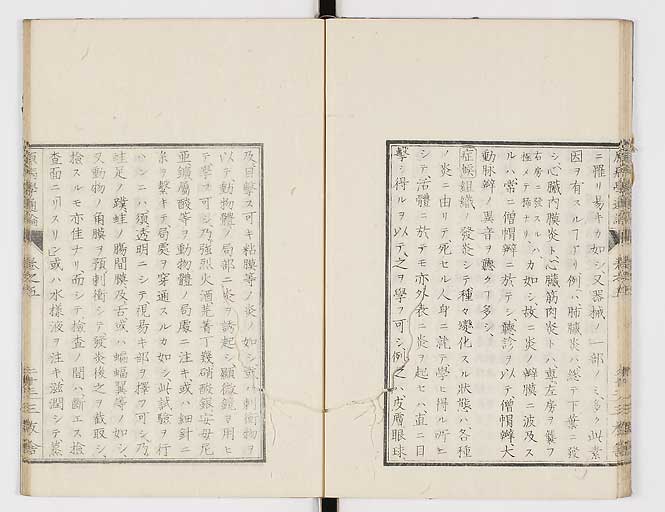 ニ罹リ易キカ如シ又器械ノ一部ノミ多ク此素
因ヲ有スルヿアリ例ハ肺臓炎ハ總テ下葉ニ發
シ心臓内膜炎ト心臓筋肉炎トハ專左房ヲ襲フ
右房ニ發スルハ極メテ稀ナリカ如シ故ニ炎ノ瓣膜ニ波及ス
ルハ常ニ僧帽瓣ニ於テシ聽診ヲ以テ僧帽瓣大
動脉瓣ノ異音ヲ聽クヿ多シ
症候組織ノ發炎シテ種々變化スル状態ハ各種
ノ炎ニ由リテ死セル人身ニ就テ學ヒ得ル所ニ
シテ活體ニ於テモ亦外表ニ炎ヲ起セハ直ニ目
擊シ得ルヲ以テ之ヲ學フ可シ例之ハ皮膚眼球
及目擊ス可キ粘膜等ノ炎ノ如シ或ハ刺衝物ヲ
以テ動物體ノ局部ニ炎ヲ誘起シ顯微鏡ヲ用ヒ
テ學ス可シ乃強烈火酒芫菁丁幾硝酸銀安母尼
亜鑛屬酸等ヲ動物體ノ局處ニ注キ或ハ細針ニ
糸ヲ繫キテ局處ヲ穿通スルカ如シ此試驗ヲ行
ハンニハ須透明ニシテ視易キ部ヲ擇フ可シ乃
蛙足ノ蹼蛙ノ腸間膜及舌或ハ蝙蝠翼等ノ如シ
又動物ノ角膜ヲ預刺衝シテ發炎後之ヲ截取シ
檢スルモ亦佳ナリ而シテ檢査ノ間ハ斷エス檢
査面ニリスリン或ハ水樣液ヲ注キ滋潤シテ蒸
原病學通論
卷之五
三友舎